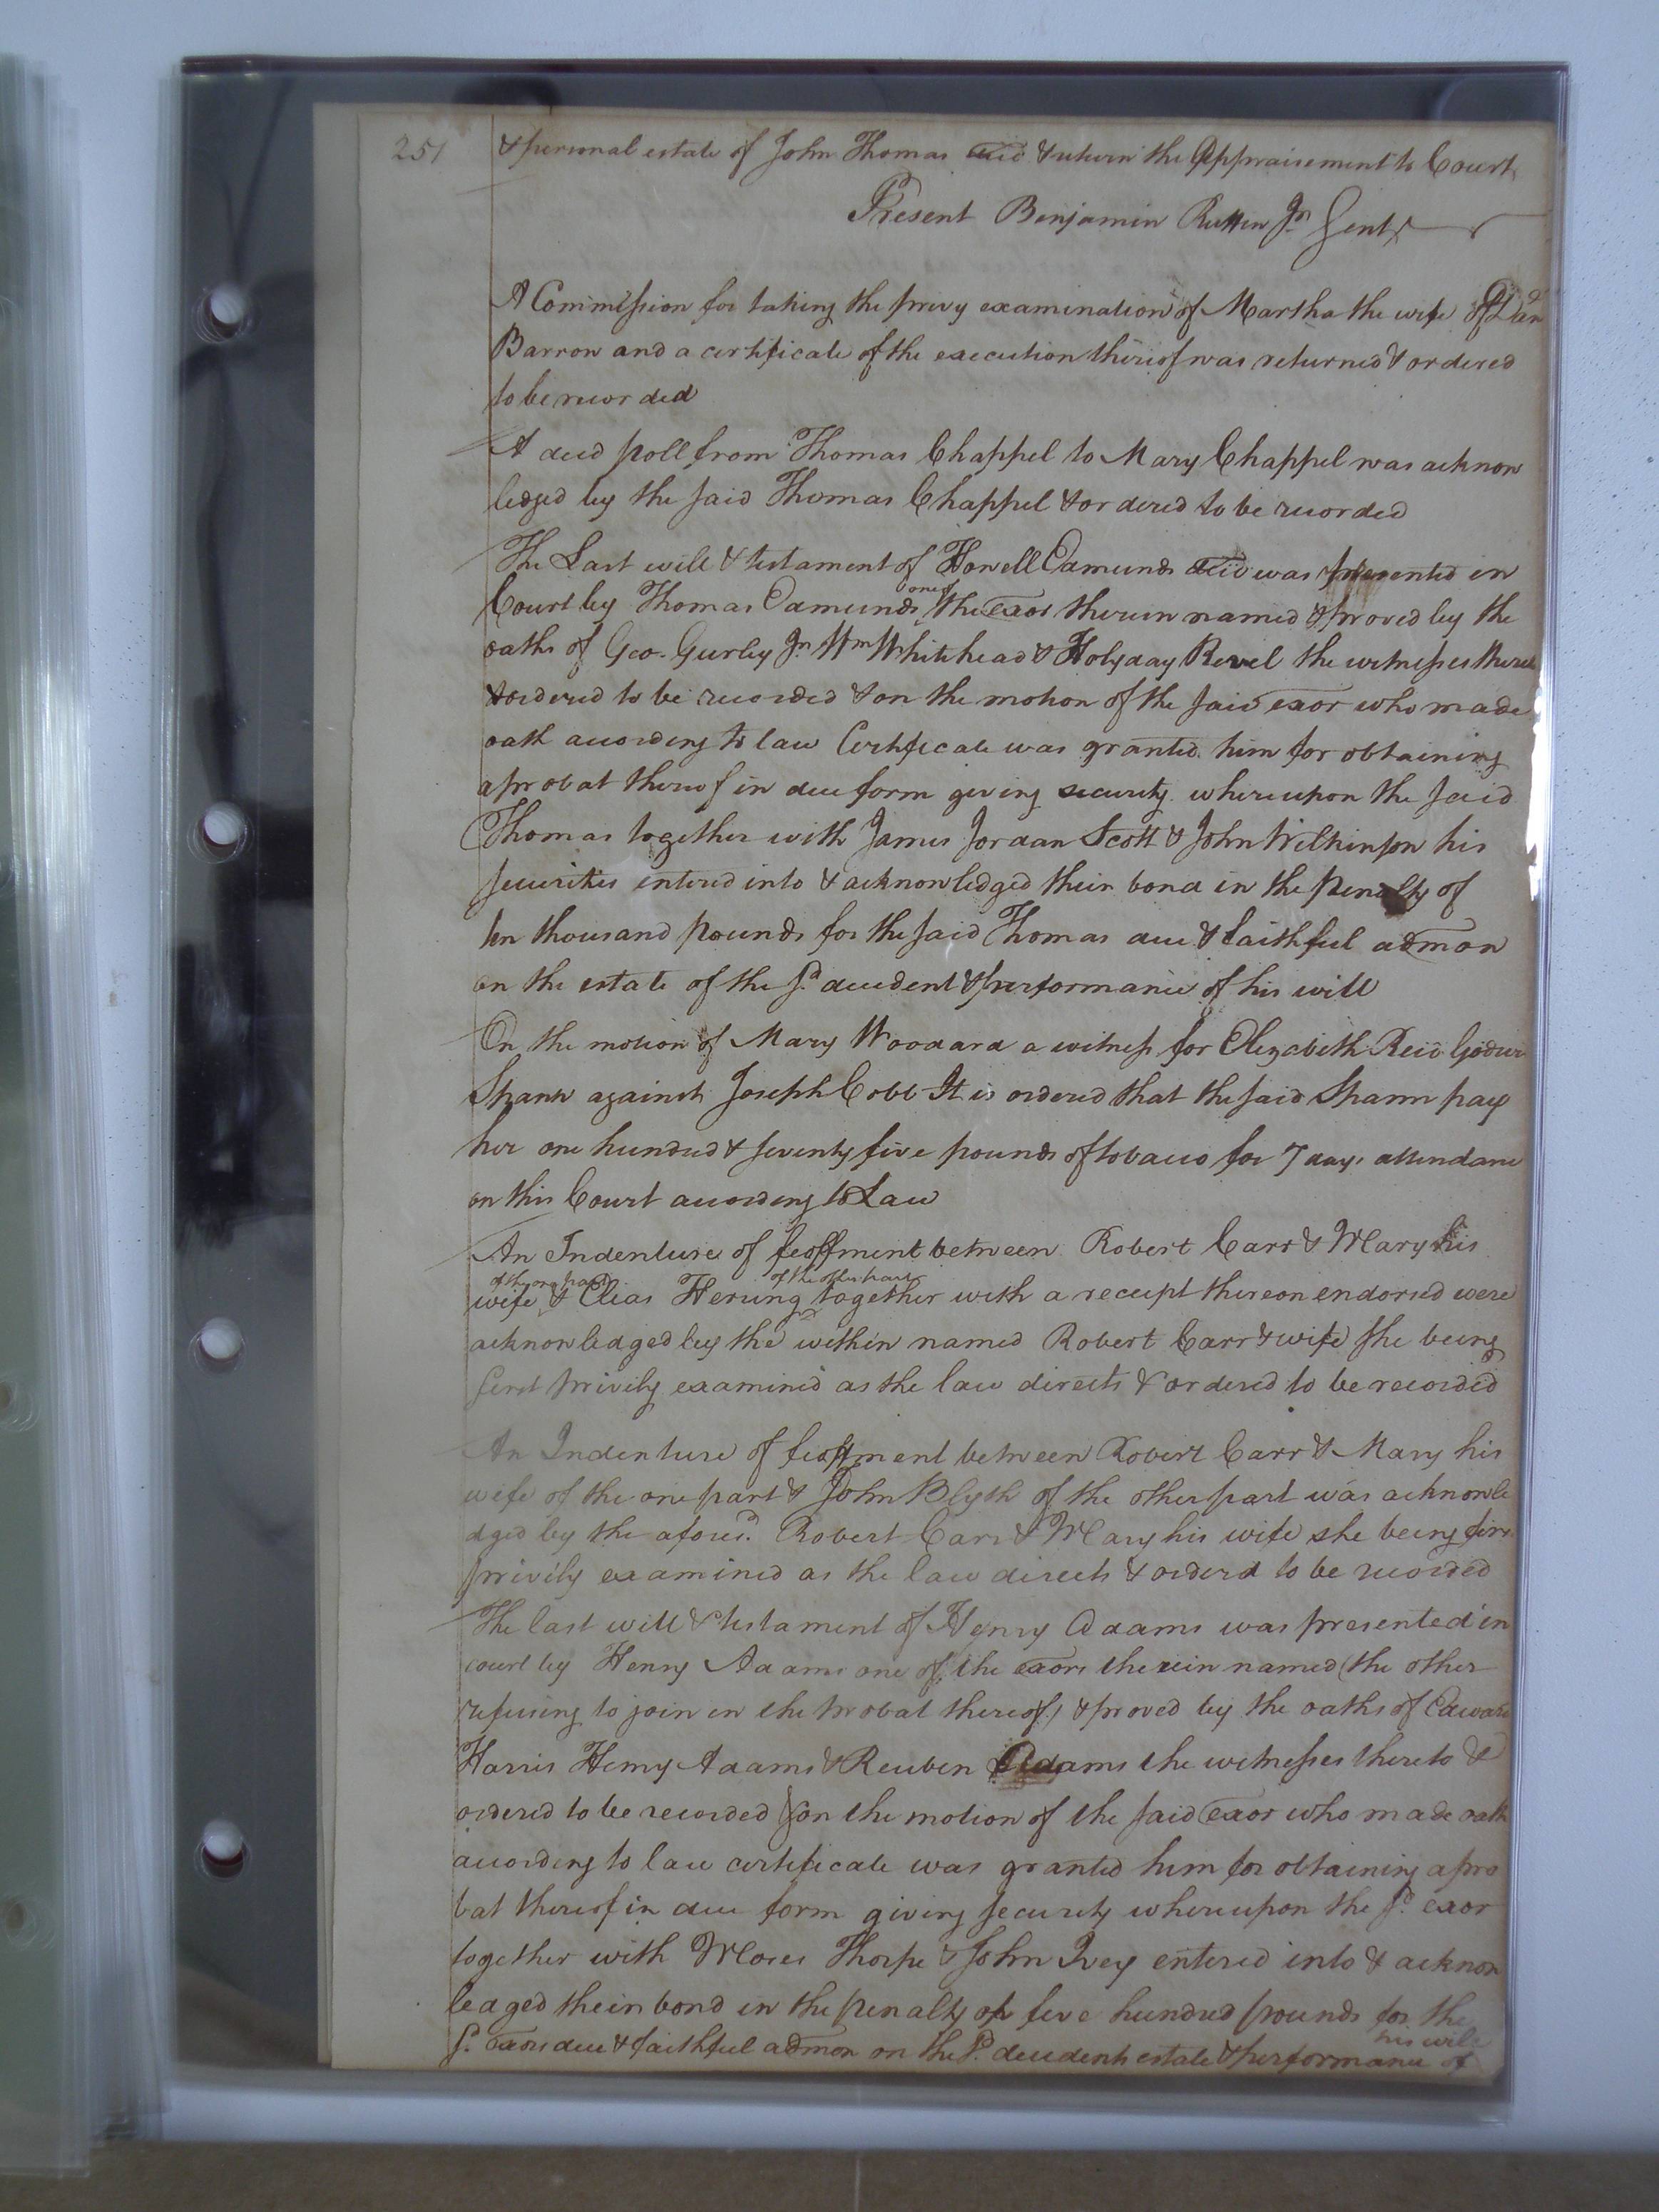 251
& personal estate of John Thomas decd & return the Appraisement to Court
Present Benjamin Ruffin Jr Gent
A Commission for taking the privy examination of Martha the wife of
Barron and a certificate of the execution thereof was returned & ordered
to be recorded
A deed poll from Thomas Chappel to Mary Chappel was acknow
ledged by the said Thomas Chappel & ordered to be recorded
The Last will & testament of Howell Edmunds decd was presented in
Court by Thomas Edmunds one of the exor therein named & proved by the
oaths of Geo. Gurley Jr Wm Whitehead & Holyday Revel the witnesses thereto
& ordered to be recorded & on the motion of the said exor who made
oath according to law Certificate was granted him for obtaining
a probat thereof in due form giving security whereupon the said
Thomas together with James Jordan Scott & John Wilkinson his
securities entered into & acknowledged their bond in the penalty of
ten thousand pounds for the said Thomas due & faithful admon
on the estate of the sd decedent & performance of his will
On the motion of Mary Woodard a witness for Elizabeth Reid Godwin
Spann against Joseph Cobb It is ordered that the said Spann pay
her one hundred & seventy five pounds of tobacco for 7 days attendance
on this Court according to Law
An Indenture of feoffment between Robert Carr & Mary his
wife of the one part & Elias Herring of the other part together with a receipt thereon endorsed were
acknowledged by the within named Robert Carr & wife she being
first privily examined as the law directs & ordered to be recorded
An Indenture of feoffment between Robert Carr & Mary his
wife of the one part & John Blyth of the other part was acknowle
dged by the aforesd. Robert Carr & Mary his wife she being first
privily examined as the law directs & ordered to be recorded
The last will & testament of Henry Adams was presented in
court by Henry Adams one of the exors therein named (the other
refusing to join in the probat thereof) & proved by the oaths of Edward
Harris Henry Adams & Reuben Adams the witnesses thereto &
ordered to be recorded & on the motion of the said exor who made oath
according to law certificate was granted him for obtaining a pro
bat thereof in due form giving security whereupon the sd. exor
together with Moses Thorpe & John Ivey entered into & acknow
ledged their bond in the penalty of five hundred pounds for the
sd. exors due & faithful admon on the sd. decedents estate & performance of his will